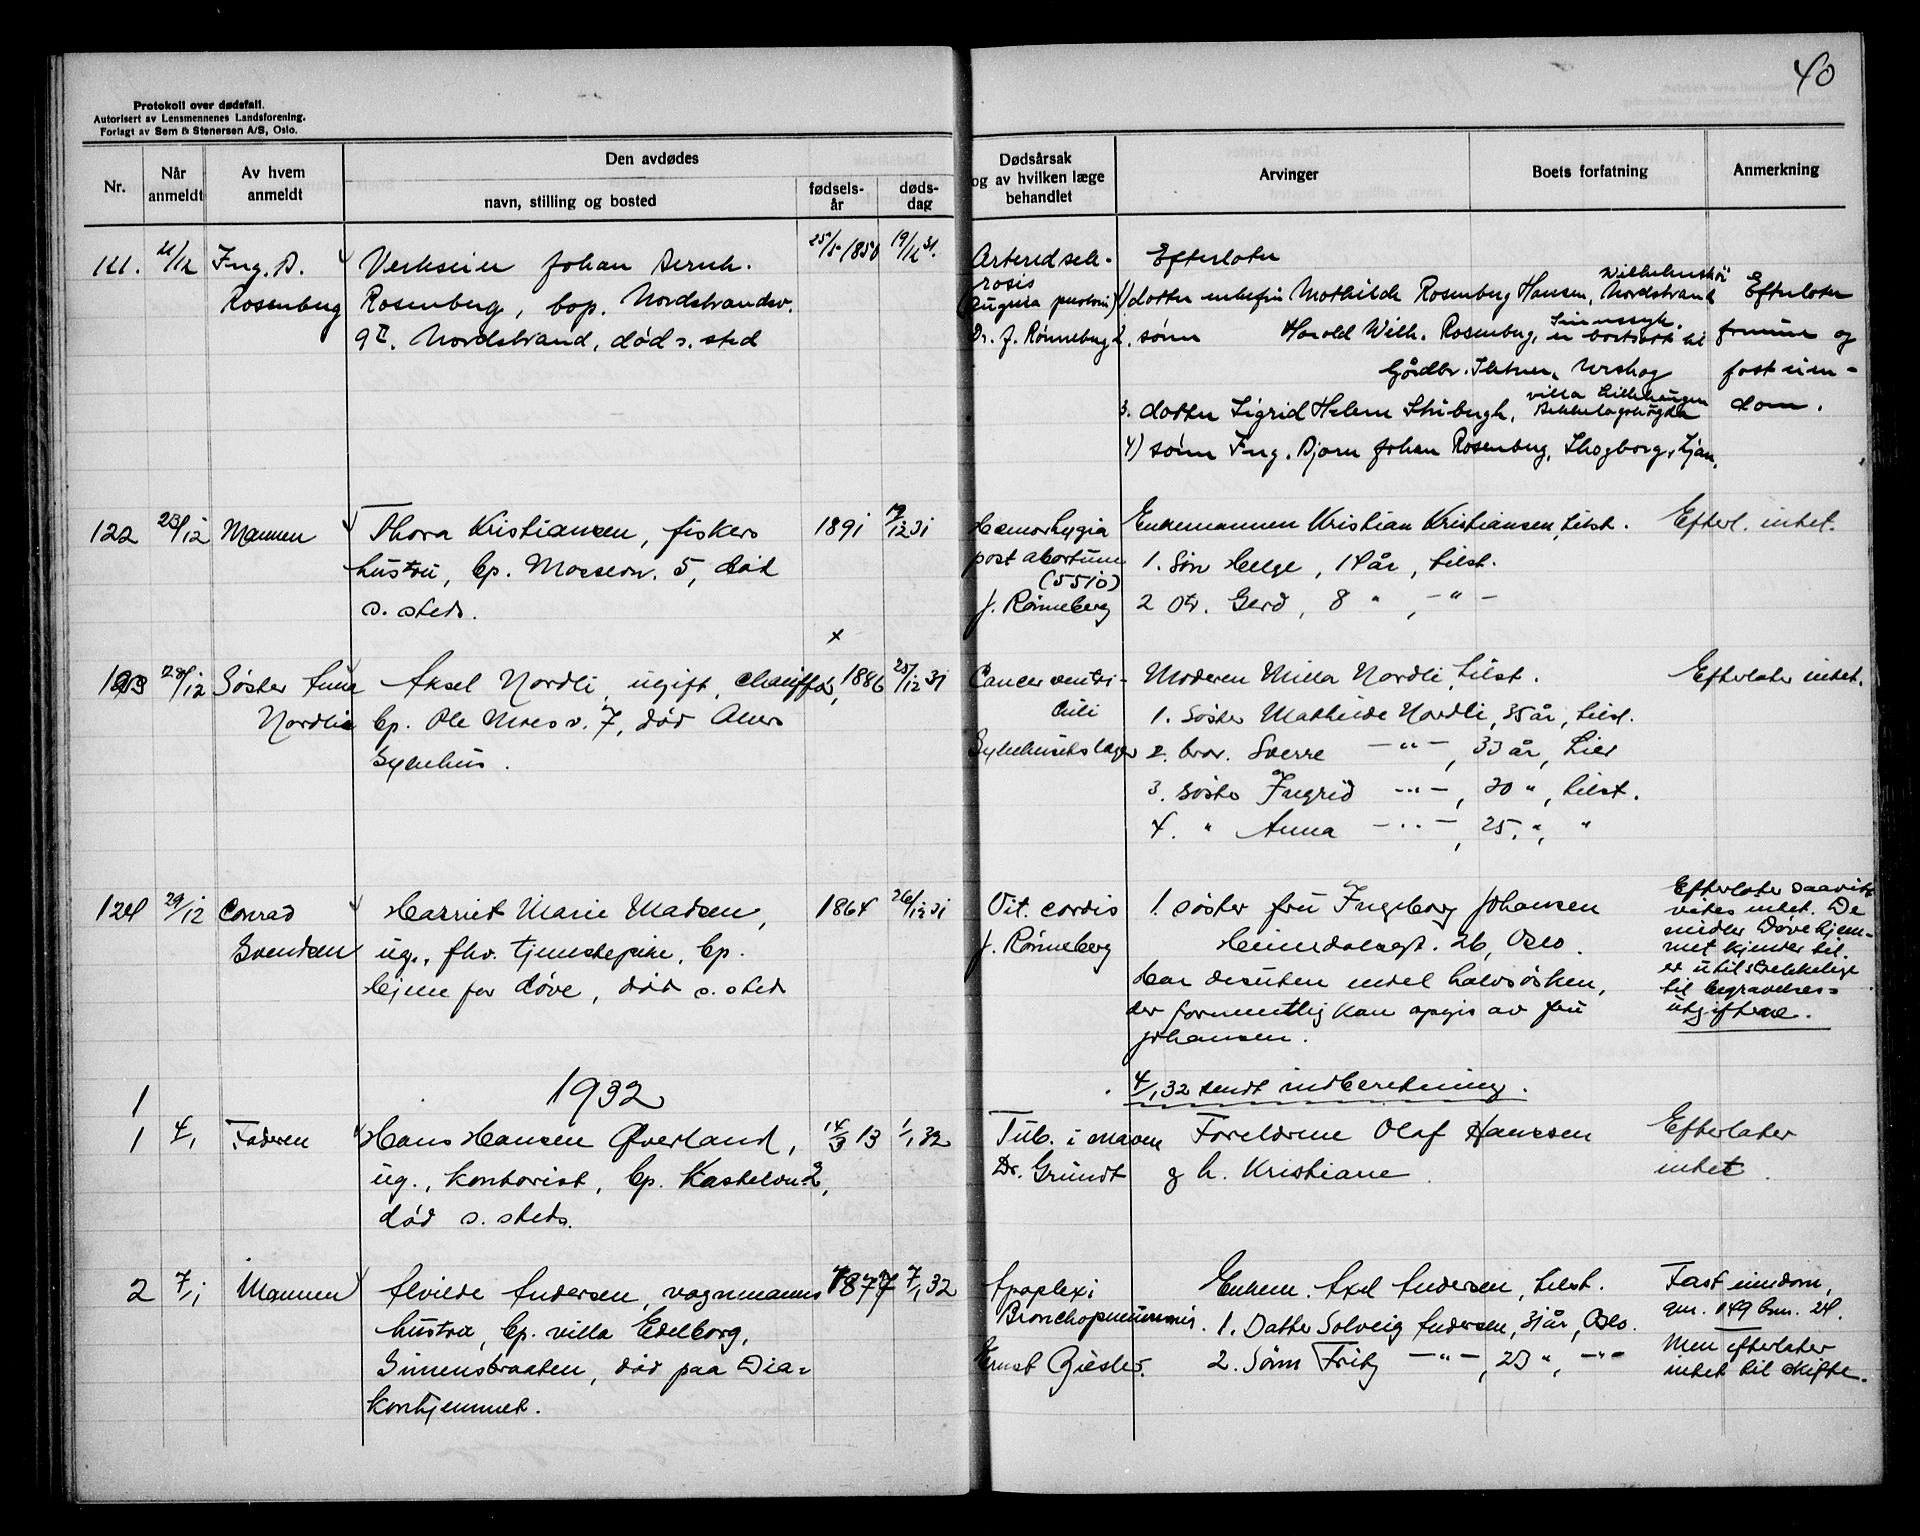 40
Protokoll over dødsfall.
Autorisert av Lensmennenes Landsforening.
Forlagt av Sem & Stenersen A/S, Oslo.
Nr.
Når anmeldt
Av hvem anmeldt
Den avdødes
navn, stilling og bosted
fødsels-år
døds-dag
Dødsårsak og av hvilken læge behandlet
Arvinger
Boets forfatning
Anmerkning
121. 21/12 Ing. B. Verkseier Johan Bernh. 25/5 1850 19/12 31.
Rosenberg Rosenberg, bop. Nordstrandsv.
9 II. Nordstrand, død s. sted
Arterioscle-
rosis
(Angina pectoris)
Dr. J. Rønneberg
Efterlater
1) datter enkefru Mathilde Rosenberg Hansen, Nordstrand
2. sønn Harald Wilh. Rosenberg, er bortsatt til
Gårdbr.
3. datter Sigrid Helene
villa Lillehaugen
Bekkelagshøgda
4) sønn Ing. Bjørn Johan Rosenberg, Skogborg, Ljan.
Efterlater
formue og
fast eien-
dom.
122 23/12 Mannen Thora Kristiansen, fiskers 1891 19/12 31
hustru, bp. Mosseon. 5, død
s. steds.
Hæmorhygia
post abortum
(5510)
J. Rønneberg
Enkemannen Kristian Kristiansen, tilst. Efterl. intet.
1. Søn Helge, 14 år, tilst.
2 Dtr. Gerd, 8 " , -"-
x
123 28/12 Søster Anna Aksel Nordli, ugift, chauffør, 1886 25/12 31
Nordlie bp. Ole Moes v. 7, død Akers
Sykehus.
Cancer ventri-
culi
Sykehusets læger
Moderen Milla Nordli, tilst. Efterlater intet.
1. Søster Mathilde Nordli, 35 år, tilst.
2. bror. Sverre -"-, 33 år, Lier
3. søster Ingrid -"-, 30 ", tilst.
4. " Anna -"-, 25, ", "
124 29/12 Conrad Harriet Marie Madsen, 1864 26/12 31
Svendsen ug., fhv. tjenestepike, bp.
Hjem for døve, død s. sted
Vit. cordis
J. Rønneberg
1. søster fru Ingeborg Johansen
Heimdalsgt. 26, Oslo.
Har desuten endel halvsøsken,
der formentlig kan opgis av fru
Johansen.
4/1 32 sendt indberetning.
Efterlater saavidt
vites intet. De
midler Døvehjem-
met kjender til
er utilstrekkelige
til begravelses-
utgiftene.
1932
1
1 4/1 Faderen Hans Hansen Øverland, 14/3 13 1/1 32
ug., kontorist, bp. Kastelvn 2,
død s. steds.
Tub. i maven
Dr. Grundt
Foreldrene Olaf Hanssen
g h. Kristiane.
Efterlater
intet.
2 7/1 Mannen Alvilde Andersen, vognmanns 1877 7/1 32
hustru, bp. villa Edelborg,
Simensbraaten, død paa Dia-
konhjemmet.
Apoplexi
Bronchopneumoni.
Ernst Giesler.
Enkem. Axel Andersen, tilst.
1. Datter Solveig Andersen, 31 år, Oslo.
2. Sønn Fritz -"-, 23 ", -"-
Fast eiendom,
gnr. 149 bnr. 24.
Men efterlater
intet til skifte.